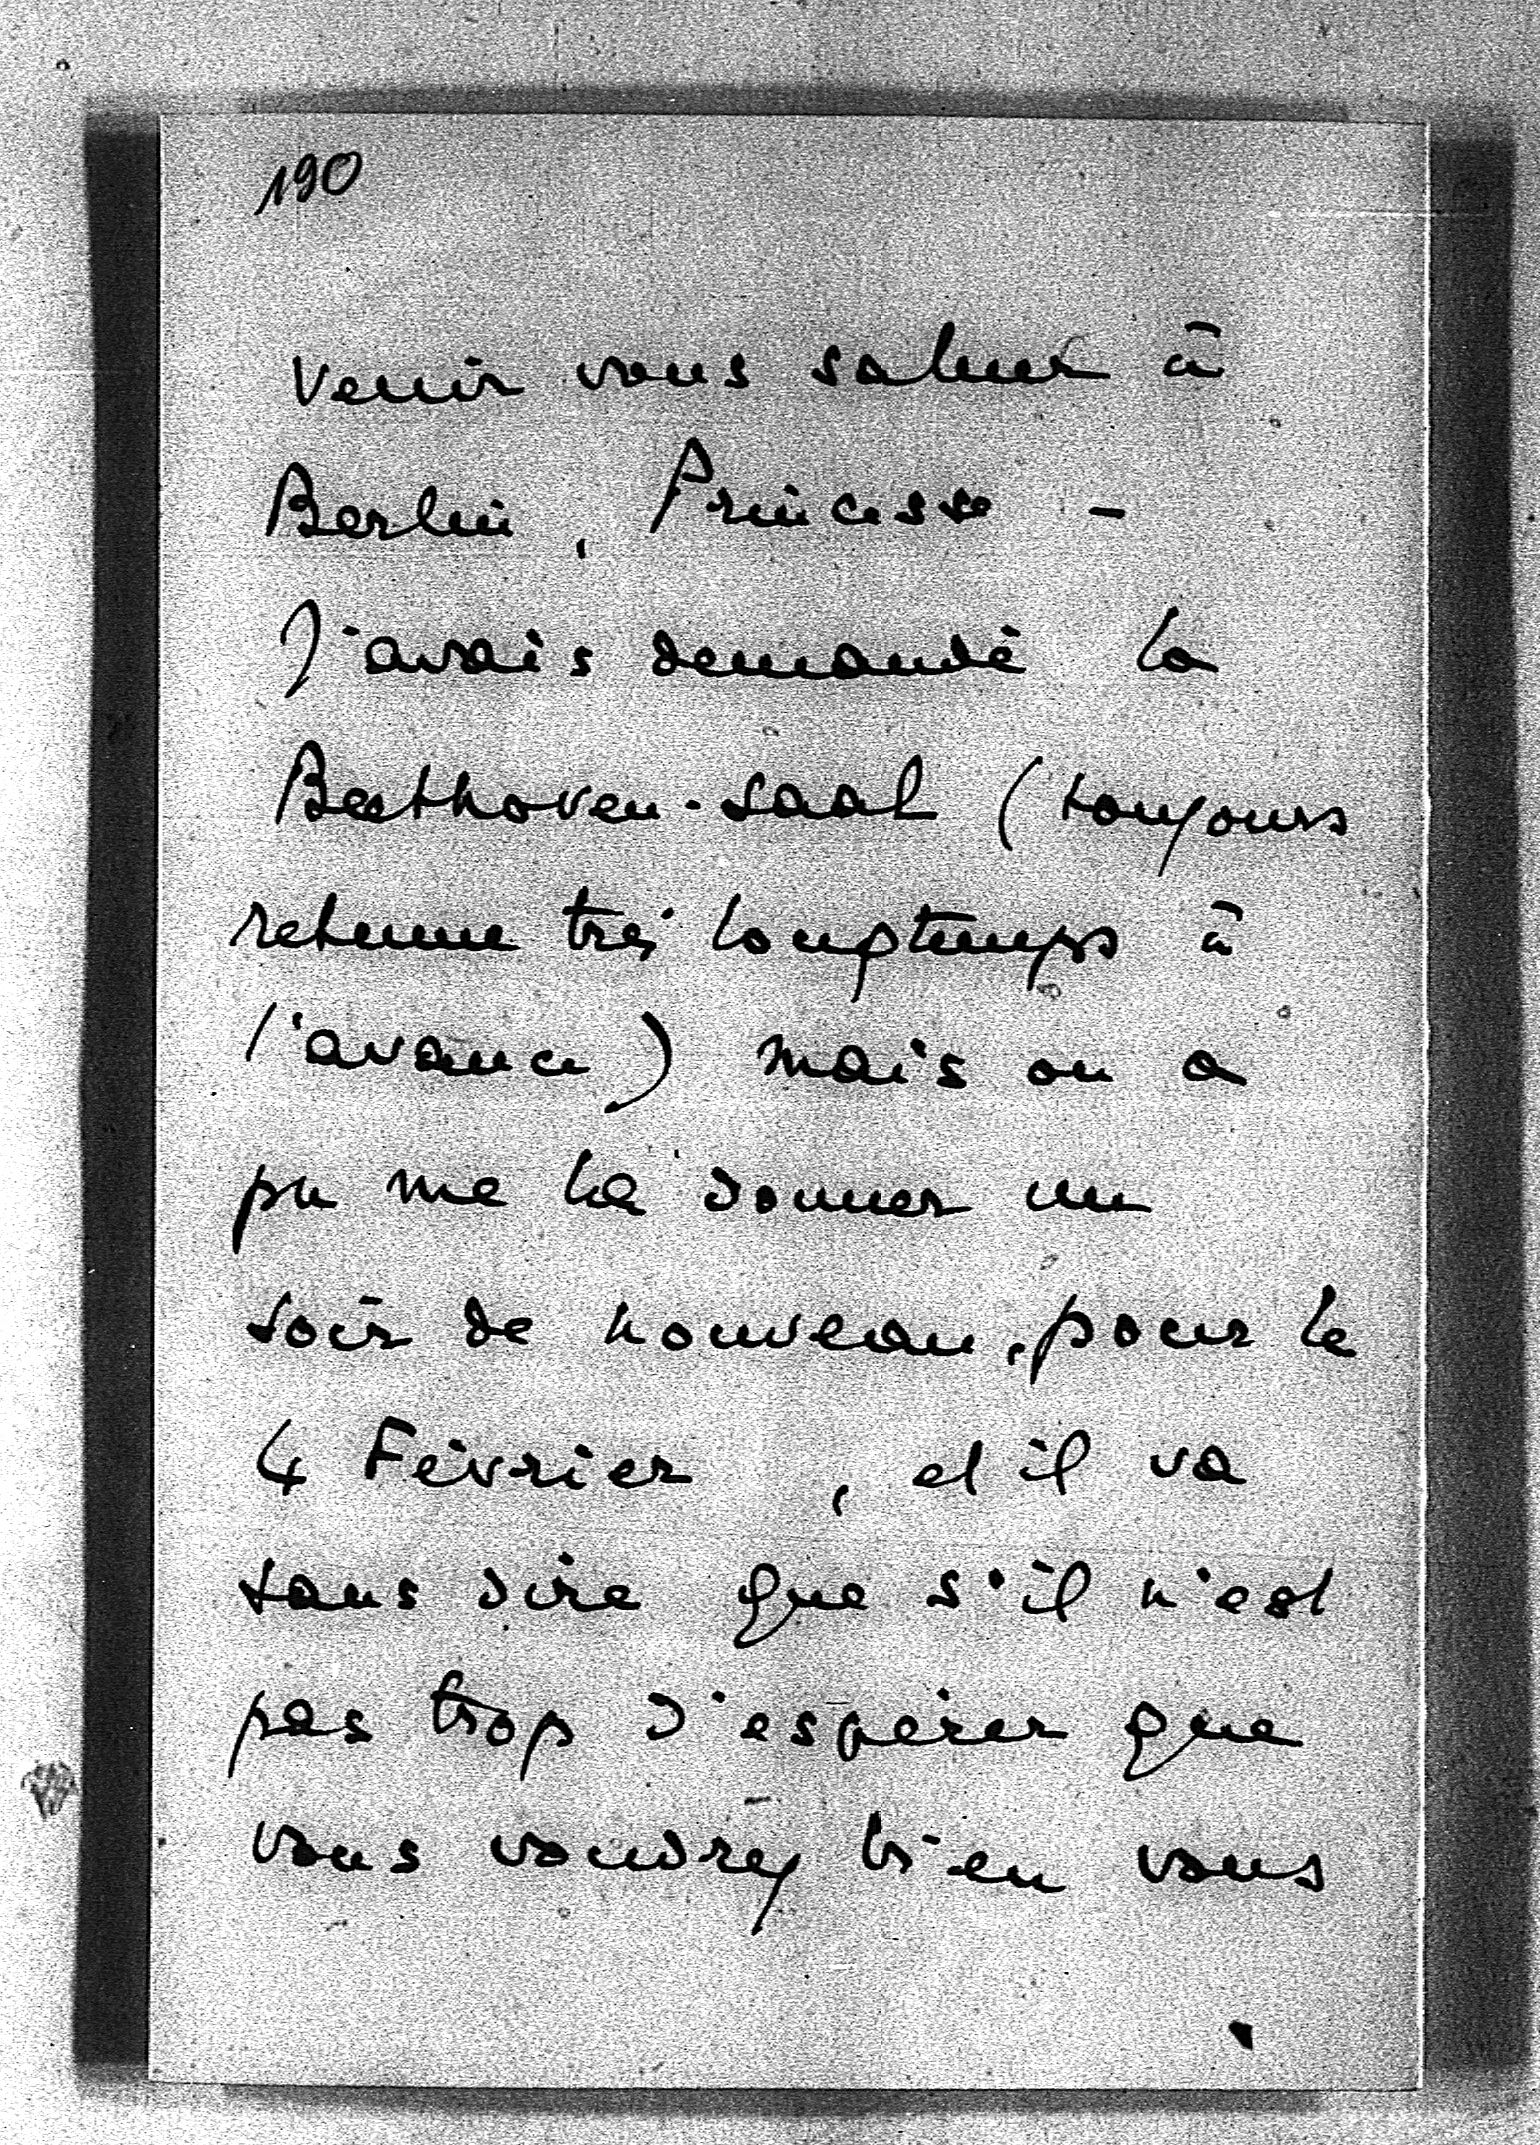 190
venir vous saluer à
Berlin, Princesse -
J'avais demandé la
Beethoven-Saal (toujours
retenue très longtemps à
l'avance) mais on a
pu me la donner un
soir de nouveau, pour le
4 Février, et il va
sans dire que s'il n'est
pas trop d'espérer que
vous voudrez bien vous